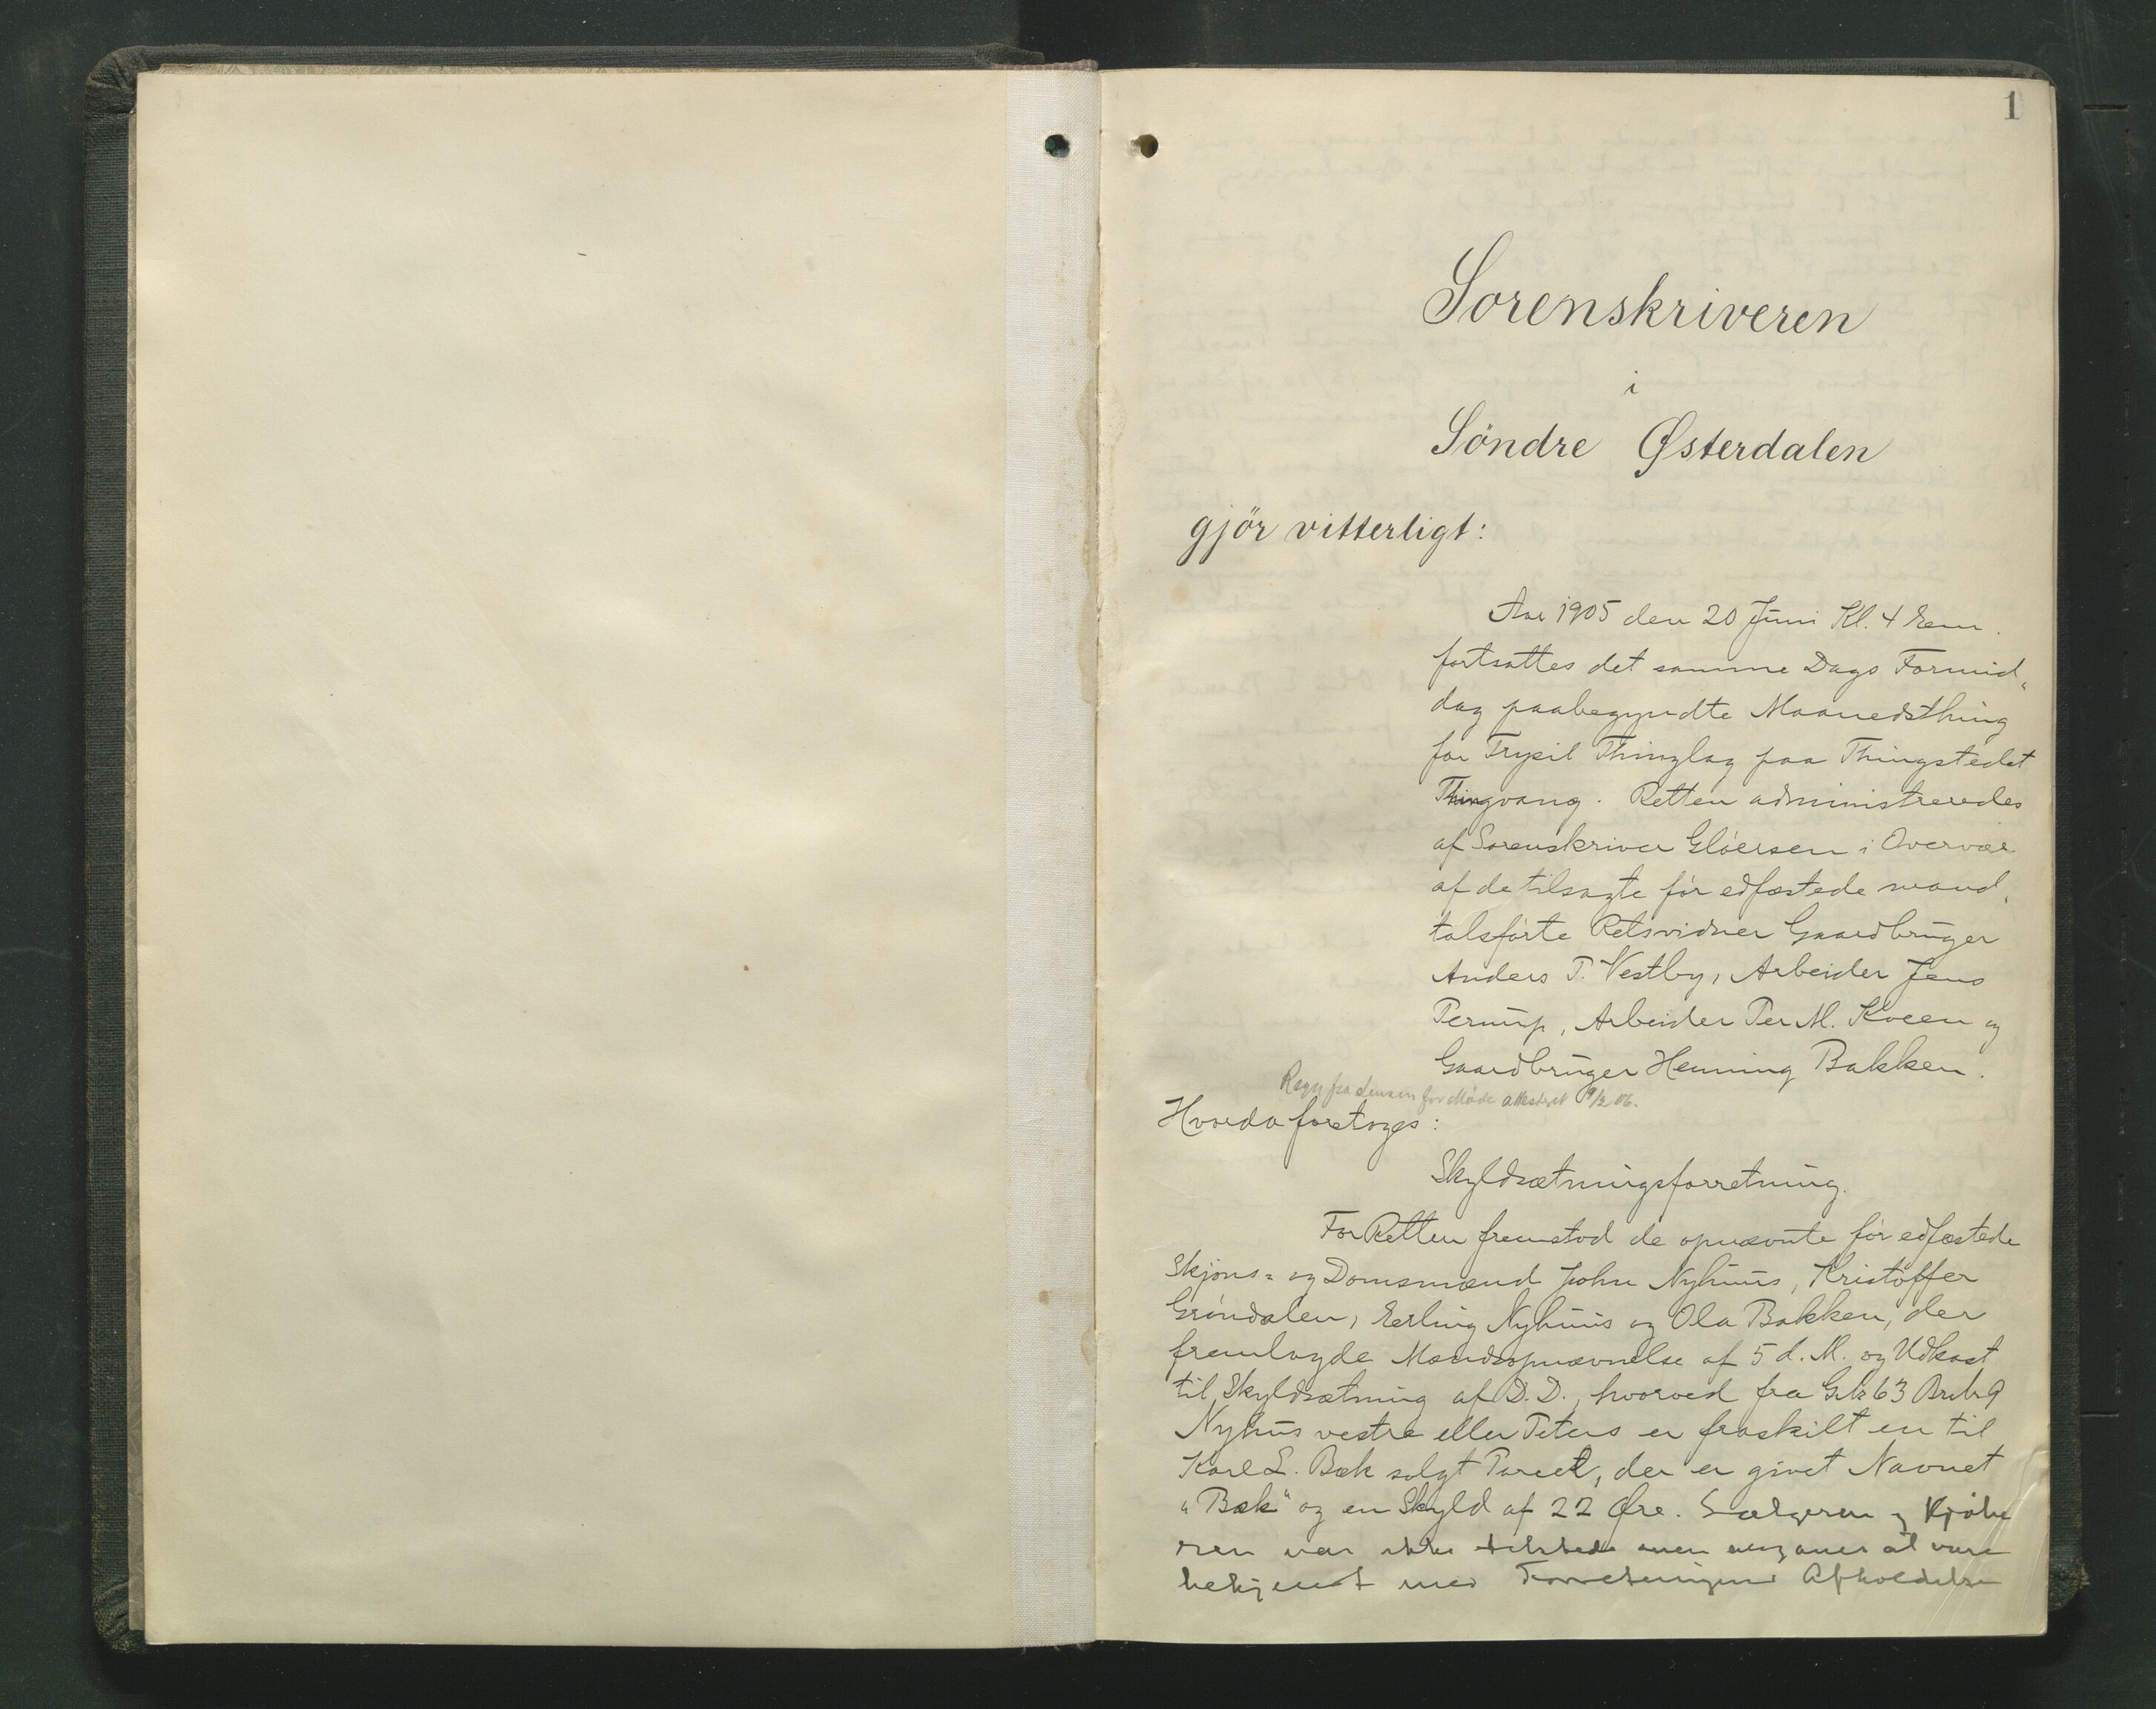 1
Sorenskriveren
i
Söndre Østerdalen
gjör vitterligt:
Aar 1905 den 20 Juni Kl. 4 Eem.
fortsattes det samme Dags Formid„
dag paabegyndte Maanedsthing
for Trysil Thinglag paa Thingstedet
Thingvang. Retten administreredes
af Sorenskriver Gløersen i Overvær
af de tilsagte før edfæstede mand„
talsførte Retsvidner Gaardbruger
Anders T. Vestby, Arbeider Jens
Pernup, Arbeider Per M. Kveen og
Gaardbruger Henning Bakken.
for Møde attesteret 9/2 06.
Hvorda foretoges:
Skyldsætningsforretning.
For Retten fremstod de opnævnte før edfæstede
Skjøns= og Domsmænd John Nyhuus, Kristoffer
Grøndalen, Erling Nyhuus og Ola Bakken, der
fremlagde Mandsopnævnelse af 5 d. M. og Udkast
til Skyldsætning af D.D., hvorved fra Gnr 63 Brnr 9
Nyhus vestre eller Peters er fraskilt en til
Karl L. Bæk solgt Parcel, der er givet Navnet
„Bæk" og en Skyld af 22 Øre. Sælgeren og Kjøbe
ren var ikke tilstede men at være
bekjendt med Forretningens Afholdelse